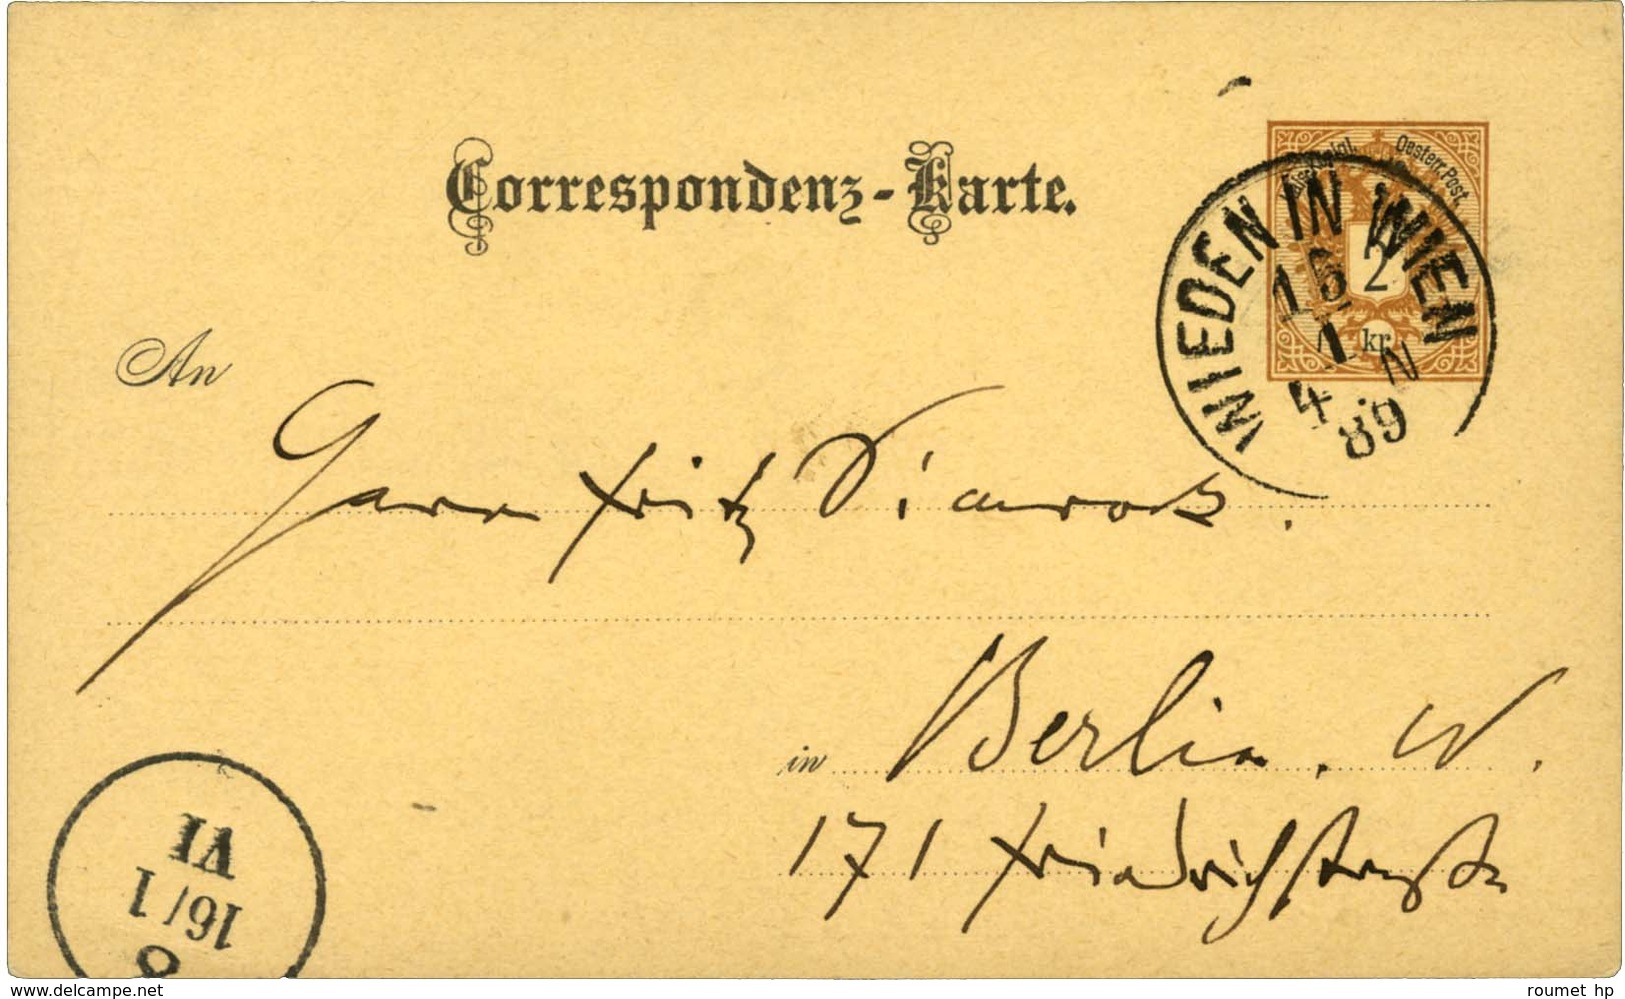 Correspondenz-Karte.
Oesterr. Post.
2
kr.
WIEDEN IN WIEN
1
4 . N
89
An
Herrn Fritz Simrock.
in Berlin. W.
171 Friedrichstraße
VI
16/1
8
www.delcampe.net
roumet hp